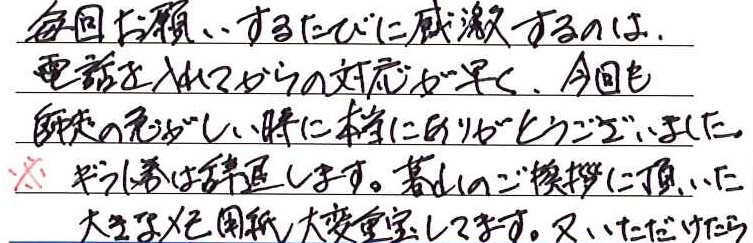 毎回お願いするたびに感激するのは、
電話を入れてからの対応が早く、今回も
師走の忙がしい時に本当にありがとうございました。
※ ギフト券は辞退します。暮れのご挨拶に頂いた
大きなメモ用紙、大変重宝してます。又いただけたら